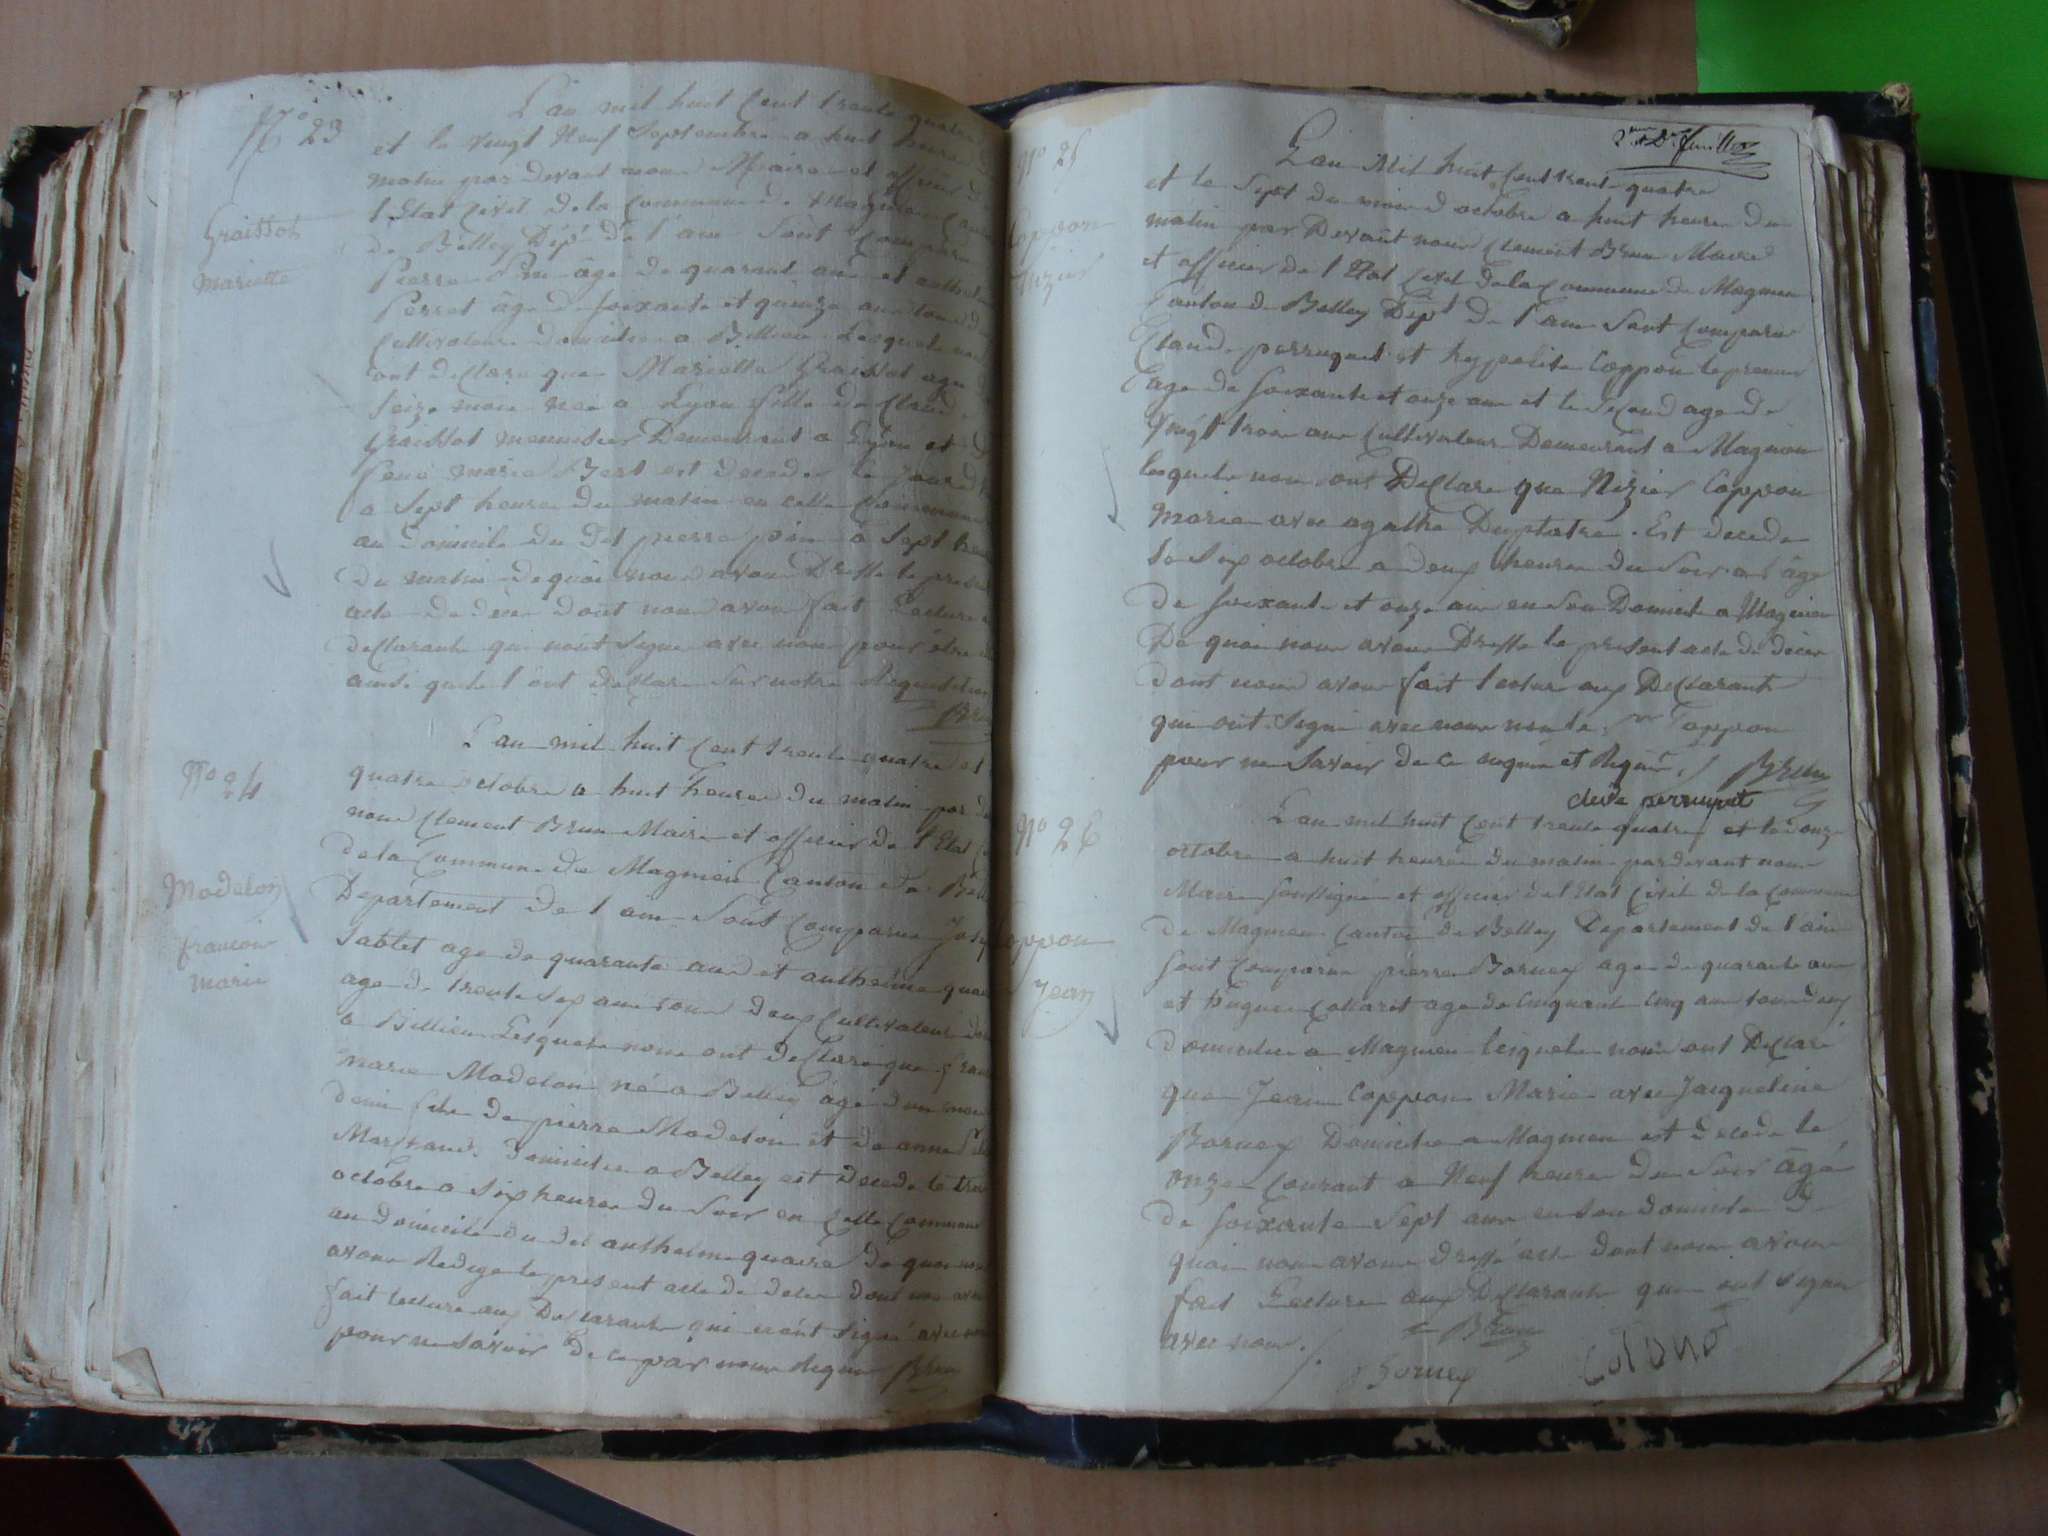 N° 23
Graissot
Mariette
L'an mil huit Cent trente quatre
et le vingt Neuf Septembre a huit heure
matin par devant nous Maire et officier d
l'Etat Civil de la Commune de Magnieu
de Belley Dépt de l'ain Sont
Pierre Pin âgé de quarant ans et anthel
Perret âge de soixante et quinze ans tous d
Cultivateur domicilie a Billieu Lesquels
ont declare que Mariette Graissot age
seize mois nee a Lyon fille de Claud
Graissot menuisier Demeurant a Lyon et
feue marie Bert est decede le
a Sept heure du matin en cette Commune
au Domicile du dit pierre pin a Sept heu
du matin de quoi nous avons Dresse le presen
acte de décès dont nous avons fait Lecture
declarants qui n'ont Signe avec nous pour
ainsi quils l'ont declare Sur notre Requisition
Bru
N° 24
Modelon
francois
marie
L'an mil huit Cent trente quatre et
quatre octobre a huit heures du matin par de
nous Clement Brun Maire et officier de l'Etat
de la Commune de Magnieu Canton de Bell
Departement de l'ain Sont Comparus Jose
Tablet age de quarante ans et anthelme quai
age de trente sep ans tous deux Cultivateurs
a Billieu Lesquels nous ont declare que fran
marie Modelon né a Belley âgé d'un mois
demi fils de pierre Modelon et de anne
Marchand Domicilie a Belley est decede le
octobre a six heures du Soir en cette Commune
au domicile du dit anthelme quaire de quoi nous
avons Redige le present acte de deces dont nous avons
fait lecture aux Declarants qui n'ont signé avec nous
pour ne Savoir de ce par nous Requis Brun
N° 25
Coppon
Nizier
L'an Mil huit Cent trent quatre
et le Sept du mois d'octobre a huit heures du
matin par Devant nous Clement Brun Maire
et officier de l'Etat Civil de la Commune de Magnieu
Canton de Belley Dépt de l'ain Sont Comparus
Claude perruquet et hypolite Coppon le premier
age de soixante et onze ans et le second age de
Vingt trois ans Cultivateurs Demeurant a Magnieu
lesquels nous ont Declare que Nizier Coppon
Marie avec agathe Duplatre. Est decede
le six octobre a deux heures du Soir a l'âge
de soixante et onze ans en son Domicile a Magnieu
De quoi nous avons Dresse le present acte de décès
dont nous avons fait lecture aux Declarants
qui ont Signe avec nous Coppon
pour ne Savoir de ce enquis et Requis Brun
claude perruquet
N° 26
Coppon
Jean
L'an mil huit Cent trente quatre et le douze
octobre a huit heures du matin pardevant nous
Maire soussigné et officier de l'Etat Civil de la Commune
de Magnieu Canton de Belley Departement de l'ain
Sont Comparus pierre Borney age de quarante ans
et hugues Collaret age de Cinquante Cinq ans tous deux
domicilie a Magnieu lesquels nous ont Declaré
que Jean Coppon Marie avec Jacqueline
Borney Domicilie a Magnieu est decede le
onze Courant a Neuf heures du Soir âgé
de soixante Sept ans en son domicile De
quoi nous avons dressé acte dont nous avons
fait Lecture aux Declarants qui ont Signe
avec nous. Brun
Borney